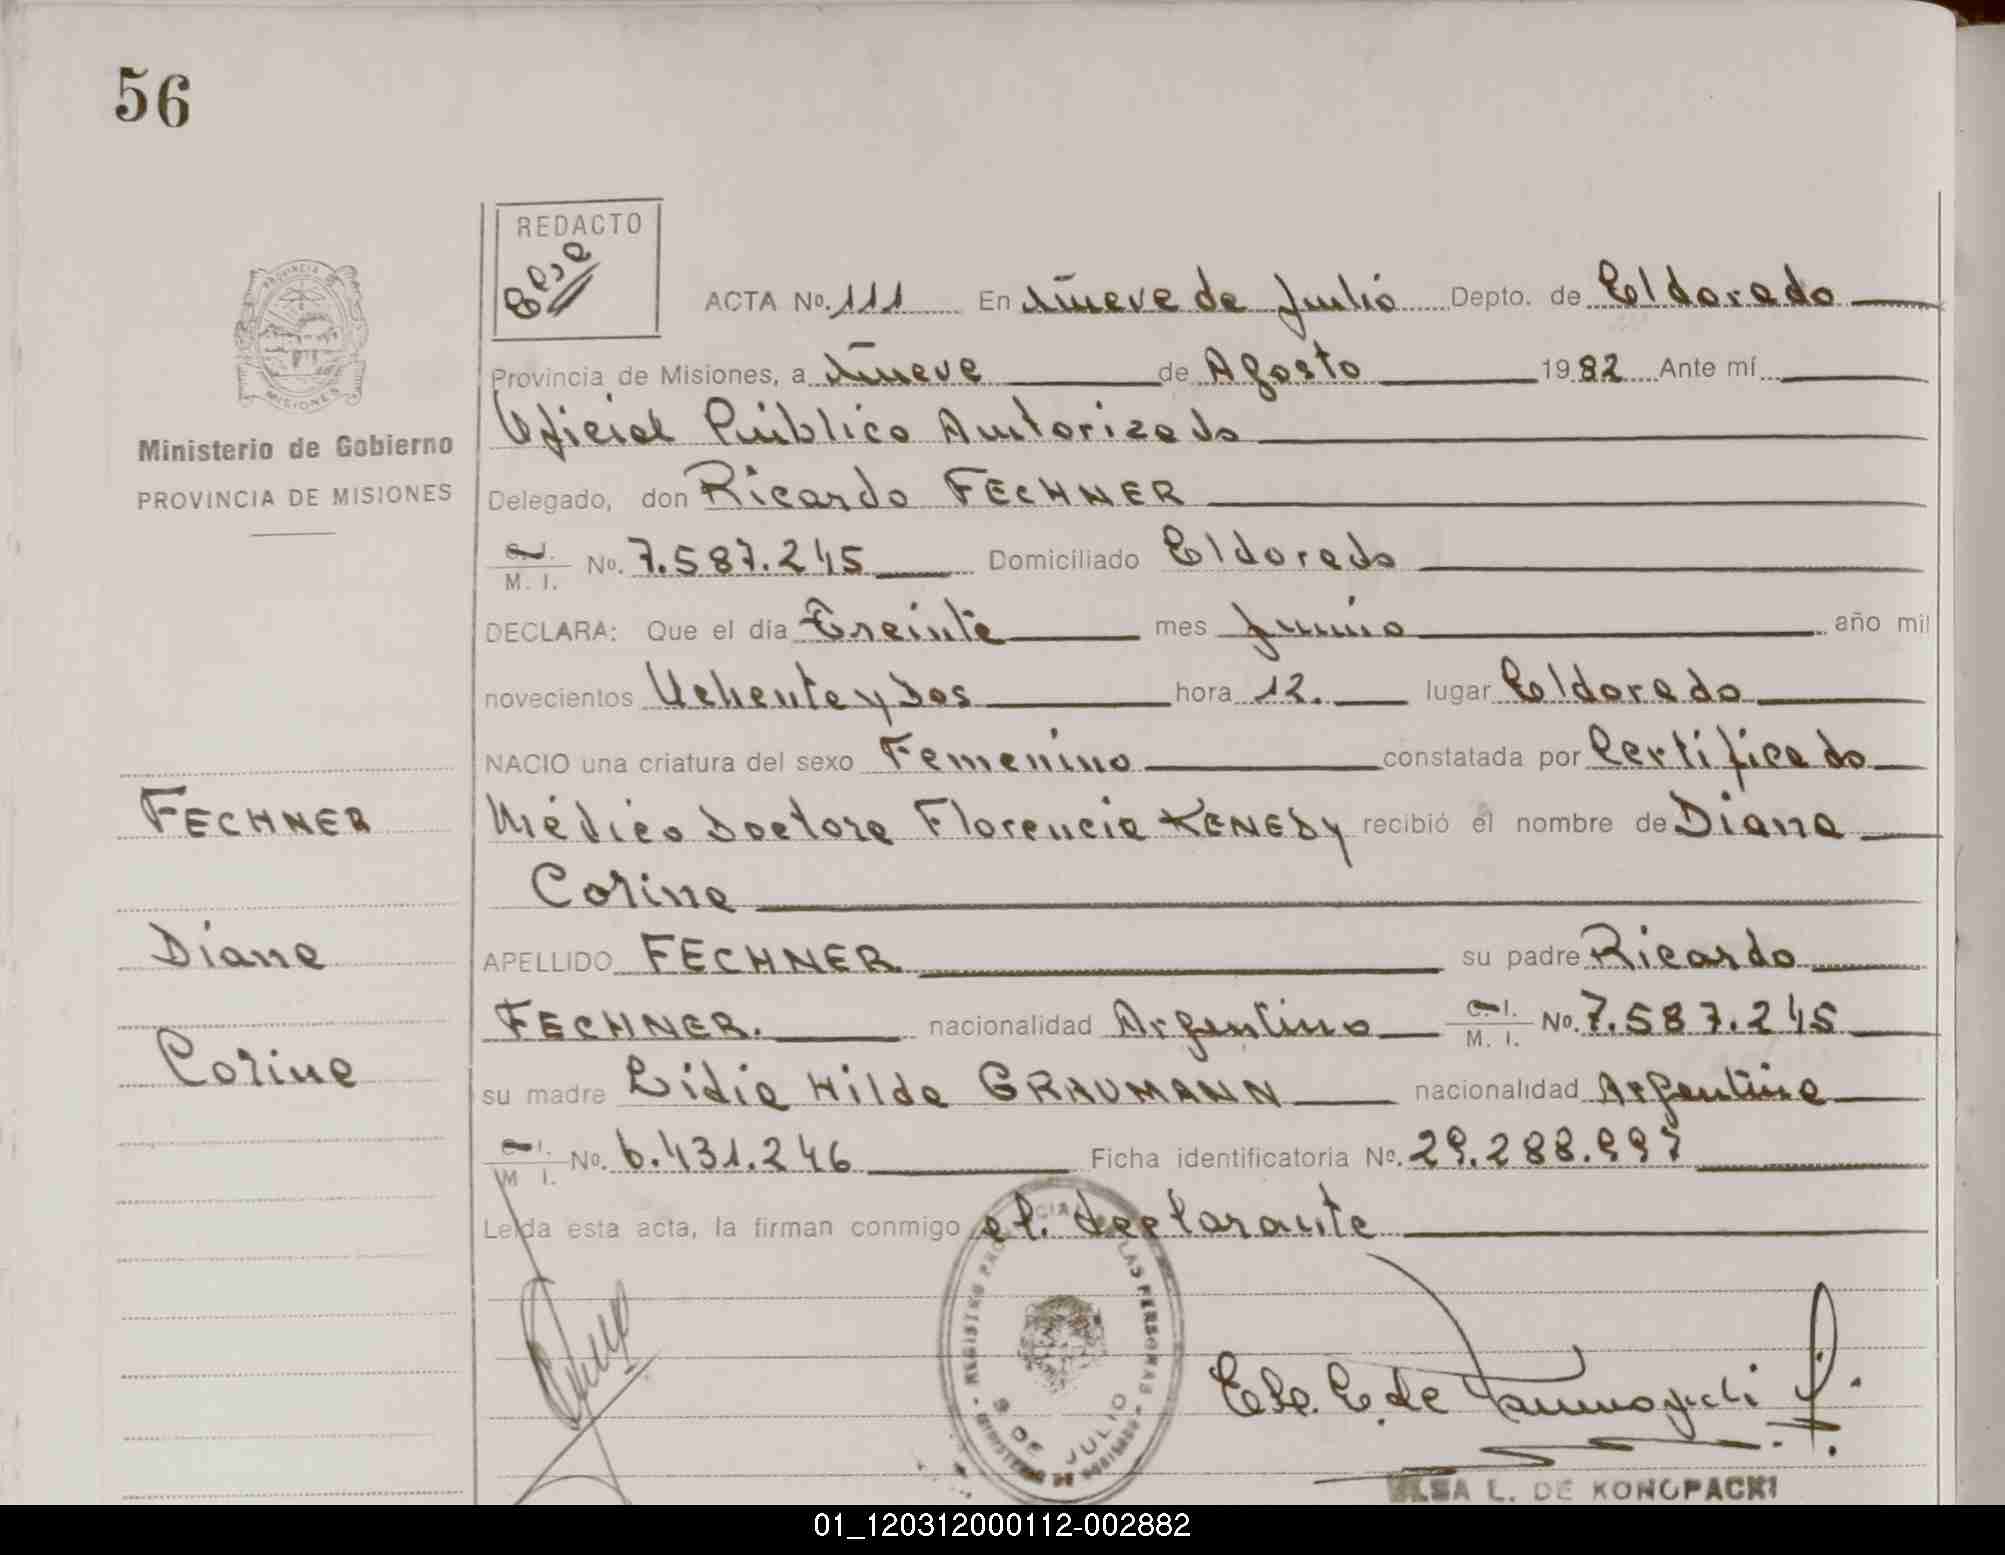 56
REDACTO
Elsa
ACTA No. 111 En Nueve de Julio Depto. de Eldorado
Provincia de Misiones, a Nueve de Agosto 1982 Ante mí
Oficial Público Autorizado
Delegado, don Ricardo FECHNER
C.I. / M. I. No. 7.587.245 Domiciliado Eldorado
DECLARA: Que el día Treinta mes Junio año mil
novecientos Ochenta y Dos hora 12. lugar Eldorado
NACIO una criatura del sexo Femenino constatada por Certificado
Médico Doctora Florencia KENEDY recibió el nombre de Diana
Corina
APELLIDO FECHNER su padre Ricardo
FECHNER. nacionalidad Argentino C.I. / M. I. No. 7.587.245
su madre Lidia Hilda GRAUMANN nacionalidad Argentina
C.I. / M I. No. 6.431.246 Ficha identificatoria No. 29.288.997
Leída esta acta, la firman conmigo el declarante
PROVINCIA DE MISIONES
Ministerio de Gobierno
PROVINCIA DE MISIONES
FECHNER
Diana
Corina
REGISTRO PROVINCIAL DE LAS PERSONAS
9 DE JULIO
MINISTERIO DE GOBIERNO
ELSA L. DE KONOPACKI
01_120312000112-002882